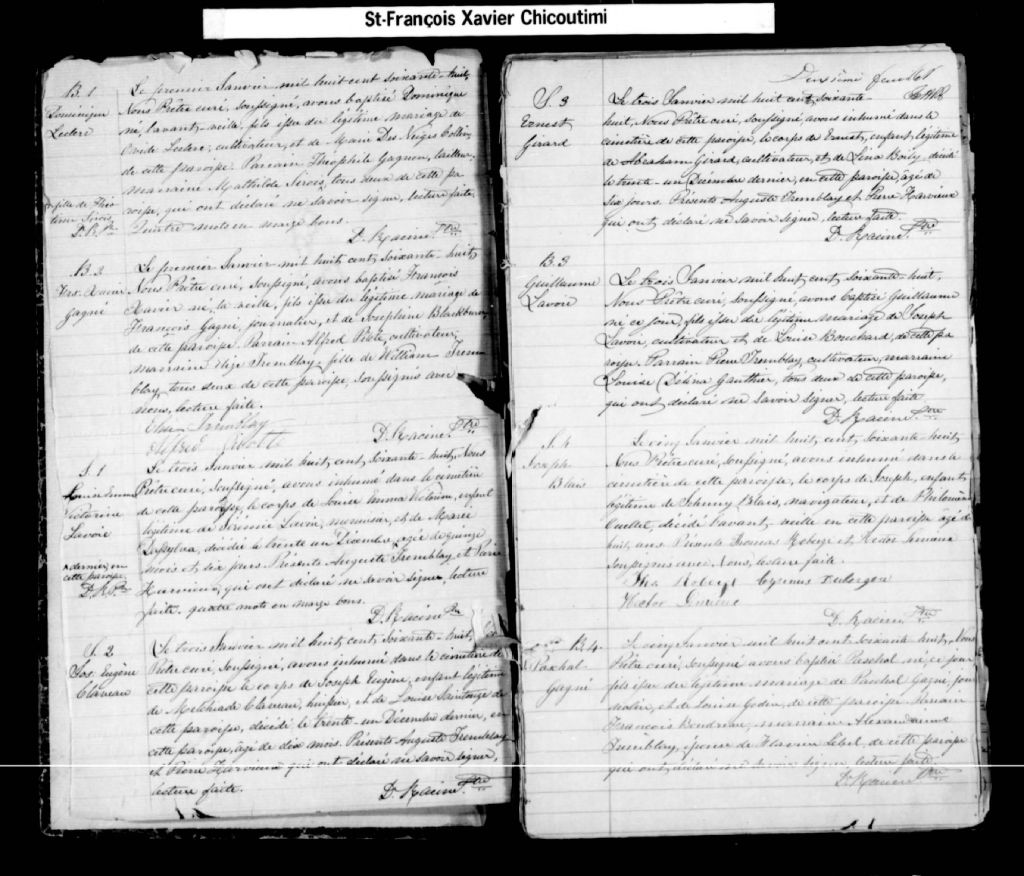 St-François Xavier Chicoutimi
B. 1
Dominique
Leclerc
Le premier Janvier mil huit cent soixante-huit,
Nous Prêtre curé, soussigné, avons baptisé Dominique
né, l'avant-veille, fils issu du légitime mariage de
Ovide Leclerc, cultivateur, et de Marie Des Neiges
de cette paroisse. Parrain Théophile Gagnon,
marraine Mathilde Sirois, tous deux de cette pa
roisse, qui ont déclaré ne savoir signer, lecture faite.
mots en marge bons.
fille de
Sirois
D. R. Ptre
D. Racine Ptre
B. 2
Frs. Xavier
Gagné
Le premier Janvier mil huit cent soixante-huit,
Nous Prêtre curé, soussigné, avons baptisé François
Xavier né, la veille, fils issu du légitime mariage de
François Gagné, journalier, et de Josephine Blackburn
de cette paroisse. Parrain Alfred cultivateur,
marraine Tremblay, fille de William Trem
blay, tous deux de cette paroisse, soussignés avec
nous, lecture faite.
Tremblay
Alfred
D. Racine Ptre
S. 1
Emma
Victorine
Lavoie
Le trois Janvier mil huit cent soixante-huit, Nous
Prêtre curé, soussigné, avons inhumé dans le cimetière
de cette paroisse, le corps de Emma enfant
légitime de Lavoie, et de Marie
décédée le trente un Décembre, agée de quinze
mois et six jours. Présents Auguste Tremblay et Pierre
Harvieux, qui ont déclaré ne savoir signer, lecture
faite. quatre mots en marge bons.
dernier, en
cette paroisse
D. R. Ptre
D. Racine Ptre
S. 2
Jos. Eugène
Claveau
Le trois Janvier mil huit cent soixante-huit,
Prêtre curé, soussigné, avons inhumé dans le cimetière de
cette paroisse le corps de Joseph Eugène, enfant légitime
de Melchiade Claveau, huissier, et de Louise de
cette paroisse, décédé le trente-un Décembre dernier, en
cette paroisse, agé de dix mois. Présents Auguste Tremblay
et Pierre Harvieux qui ont déclaré ne savoir signer,
lecture faite.
D. Racine Ptre
Deuxième feuillet
S. 3
Ernest
Girard
Le trois Janvier mil huit cent soixante
huit, Nous Prêtre curé, soussigné, avons inhumé dans le
cimetière de cette paroisse, le corps de Ernest, enfant légitime
de Abraham Girard, cultivateur, et de Lina Boily, décédé
le trente-un Décembre dernier, en cette paroisse, agé de
six jours. Présents Auguste Tremblay et Pierre Harvieux
qui ont déclaré ne savoir signer, lecture faite.
D. Racine Ptre
B. 3
Guillaume
Lavoie
Le trois Janvier mil huit cent soixante-huit,
Nous Prêtre curé, soussigné, avons baptisé Guillaume
né ce jour, fils issu du légitime mariage de Joseph
Lavoie, cultivateur et de Louise Bouchard, de cette pa
roisse. Parrain Pierre Tremblay, cultivateur, marraine
Louise Délina Gauthier, tous deux de cette paroisse,
qui ont déclaré ne savoir signer, lecture faite.
D. Racine Ptre
S. 4
Joseph
Blais
Le cinq Janvier mil huit cent soixante-huit
Nous Prêtre curé, soussigné, avons inhumé dans le
cimetière de cette paroisse, le corps de Joseph, enfant
légitime de Johnny Blais, navigateur, et de Philomène
Ouellet, décédé l'avant-veille en cette paroisse agé de
huit ans. Présents Thomas Roberge et Hector
soussignés avec Nous, lecture faite.
Ths Roberge Cyrénus Duberger
Hector
D. Racine Ptre
B. 4
Paschal
Gagné
Le cinq Janvier mil huit cent soixante-huit, Nous
Prêtre curé, soussigné avons baptisé Paschal né, ce jour
fils issu du légitime mariage de Paschal Gagné, jour
nalier, et de Louise Godin, de cette paroisse. Parrain
François Boudreau, marraine
Tremblay, épouse de Lebel, de cette paroisse
qui ont déclaré ne savoir signer, lecture faite.
D. Racine Ptre